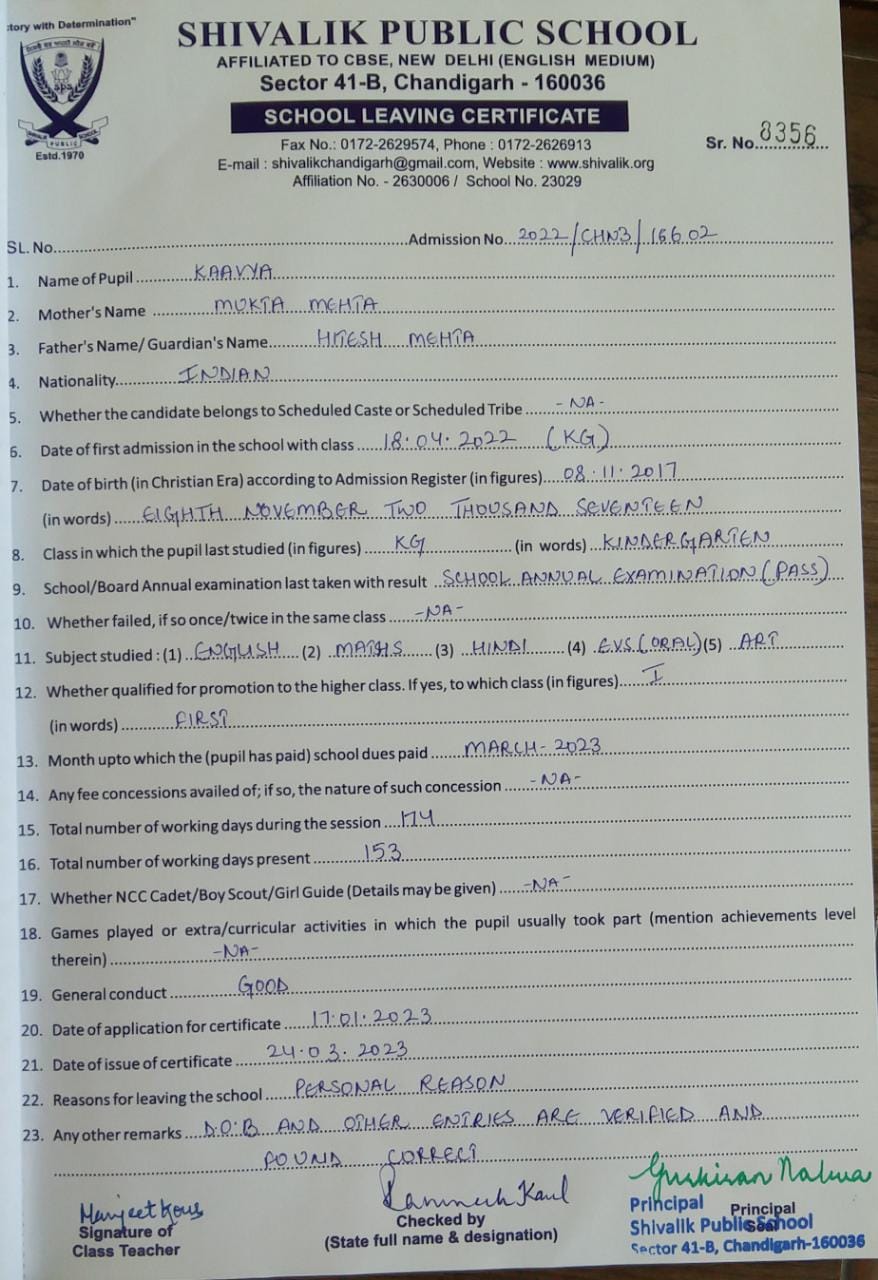 tory with Determination"
SHIVALIK PUBLIC SCHOOL
AFFILIATED TO CBSE, NEW DELHI (ENGLISH MEDIUM)
Sector 41-B, Chandigarh - 160036
SCHOOL LEAVING CERTIFICATE
Estd.1970
Fax No.: 0172-2629574, Phone : 0172-2626913
Sr. No. 8356
E-mail : shivalikchandigarh@gmail.com, Website : www.shivalik.org
Affiliation No. - 2630006 / School No. 23029
SL. No. Admission No. 2022/CHN3/16602
1. Name of Pupil KAAVYA
2. Mother's Name MUKTA MEHTA
3. Father's Name/ Guardian's Name HITESH MEHTA
4. Nationality INDIAN
5. Whether the candidate belongs to Scheduled Caste or Scheduled Tribe -NA-
6. Date of first admission in the school with class 18.04.2022 (KG)
7. Date of birth (in Christian Era) according to Admission Register (in figures) 08.11.2017
(in words) EIGHTH NOVEMBER TWO THOUSAND SEVENTEEN
8. Class in which the pupil last studied (in figures) KG (in words) KINDERGARTEN
9. School/Board Annual examination last taken with result SCHOOL ANNUAL EXAMINATION (PASS)
10. Whether failed, if so once/twice in the same class -NA-
11. Subject studied : (1) ENGLISH (2) MATHS (3) HINDI (4) EVS (ORAL) (5) ART
12. Whether qualified for promotion to the higher class. If yes, to which class (in figures) I
(in words) FIRST
13. Month upto which the (pupil has paid) school dues paid MARCH-2023
14. Any fee concessions availed of; if so, the nature of such concession -NA-
15. Total number of working days during the session 174
16. Total number of working days present 153
17. Whether NCC Cadet/Boy Scout/Girl Guide (Details may be given) -NA-
18. Games played or extra/curricular activities in which the pupil usually took part (mention achievements level
therein) -NA-
19. General conduct GOOD
20. Date of application for certificate 17.01.2023
21. Date of issue of certificate 24.03.2023
22. Reasons for leaving the school PERSONAL REASON
23. Any other remarks D.O.B AND OTHER ENTRIES ARE VERIFIED AND
FOUND CORRECT
Signature of
Class Teacher
Checked by
(State full name & designation)
Principal
Seal
Principal
Shivalik Public School
Sector 41-B, Chandigarh-160036